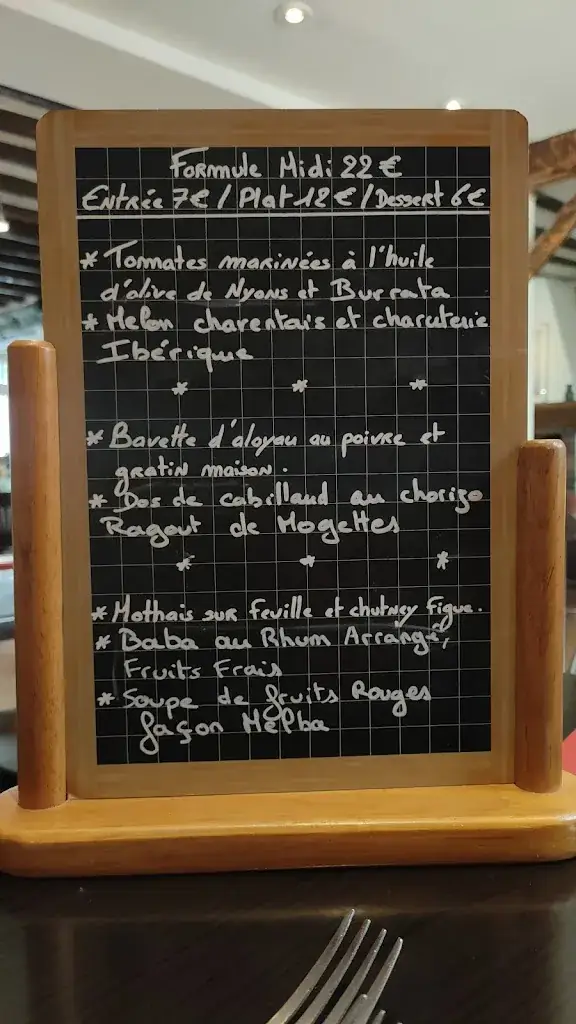 Formule Midi 22 €
Entrée 7€ / Plat 12 € / Dessert 6€
* Tomates marinées à l'huile
d'olive de Nyons et Burrata
* Melon charentais et charcuterie
Ibérique
* * *
* Bavette d'aloyau au poivre et
gratin maison.
* Dos de cabillaud au chorizo
Ragout de Mogettes
* * *
* Mothais sur feuille et chutney Figue.
* Baba au Rhum Arrangé,
Fruits Frais
* Soupe de fruits Rouges
façon Melba